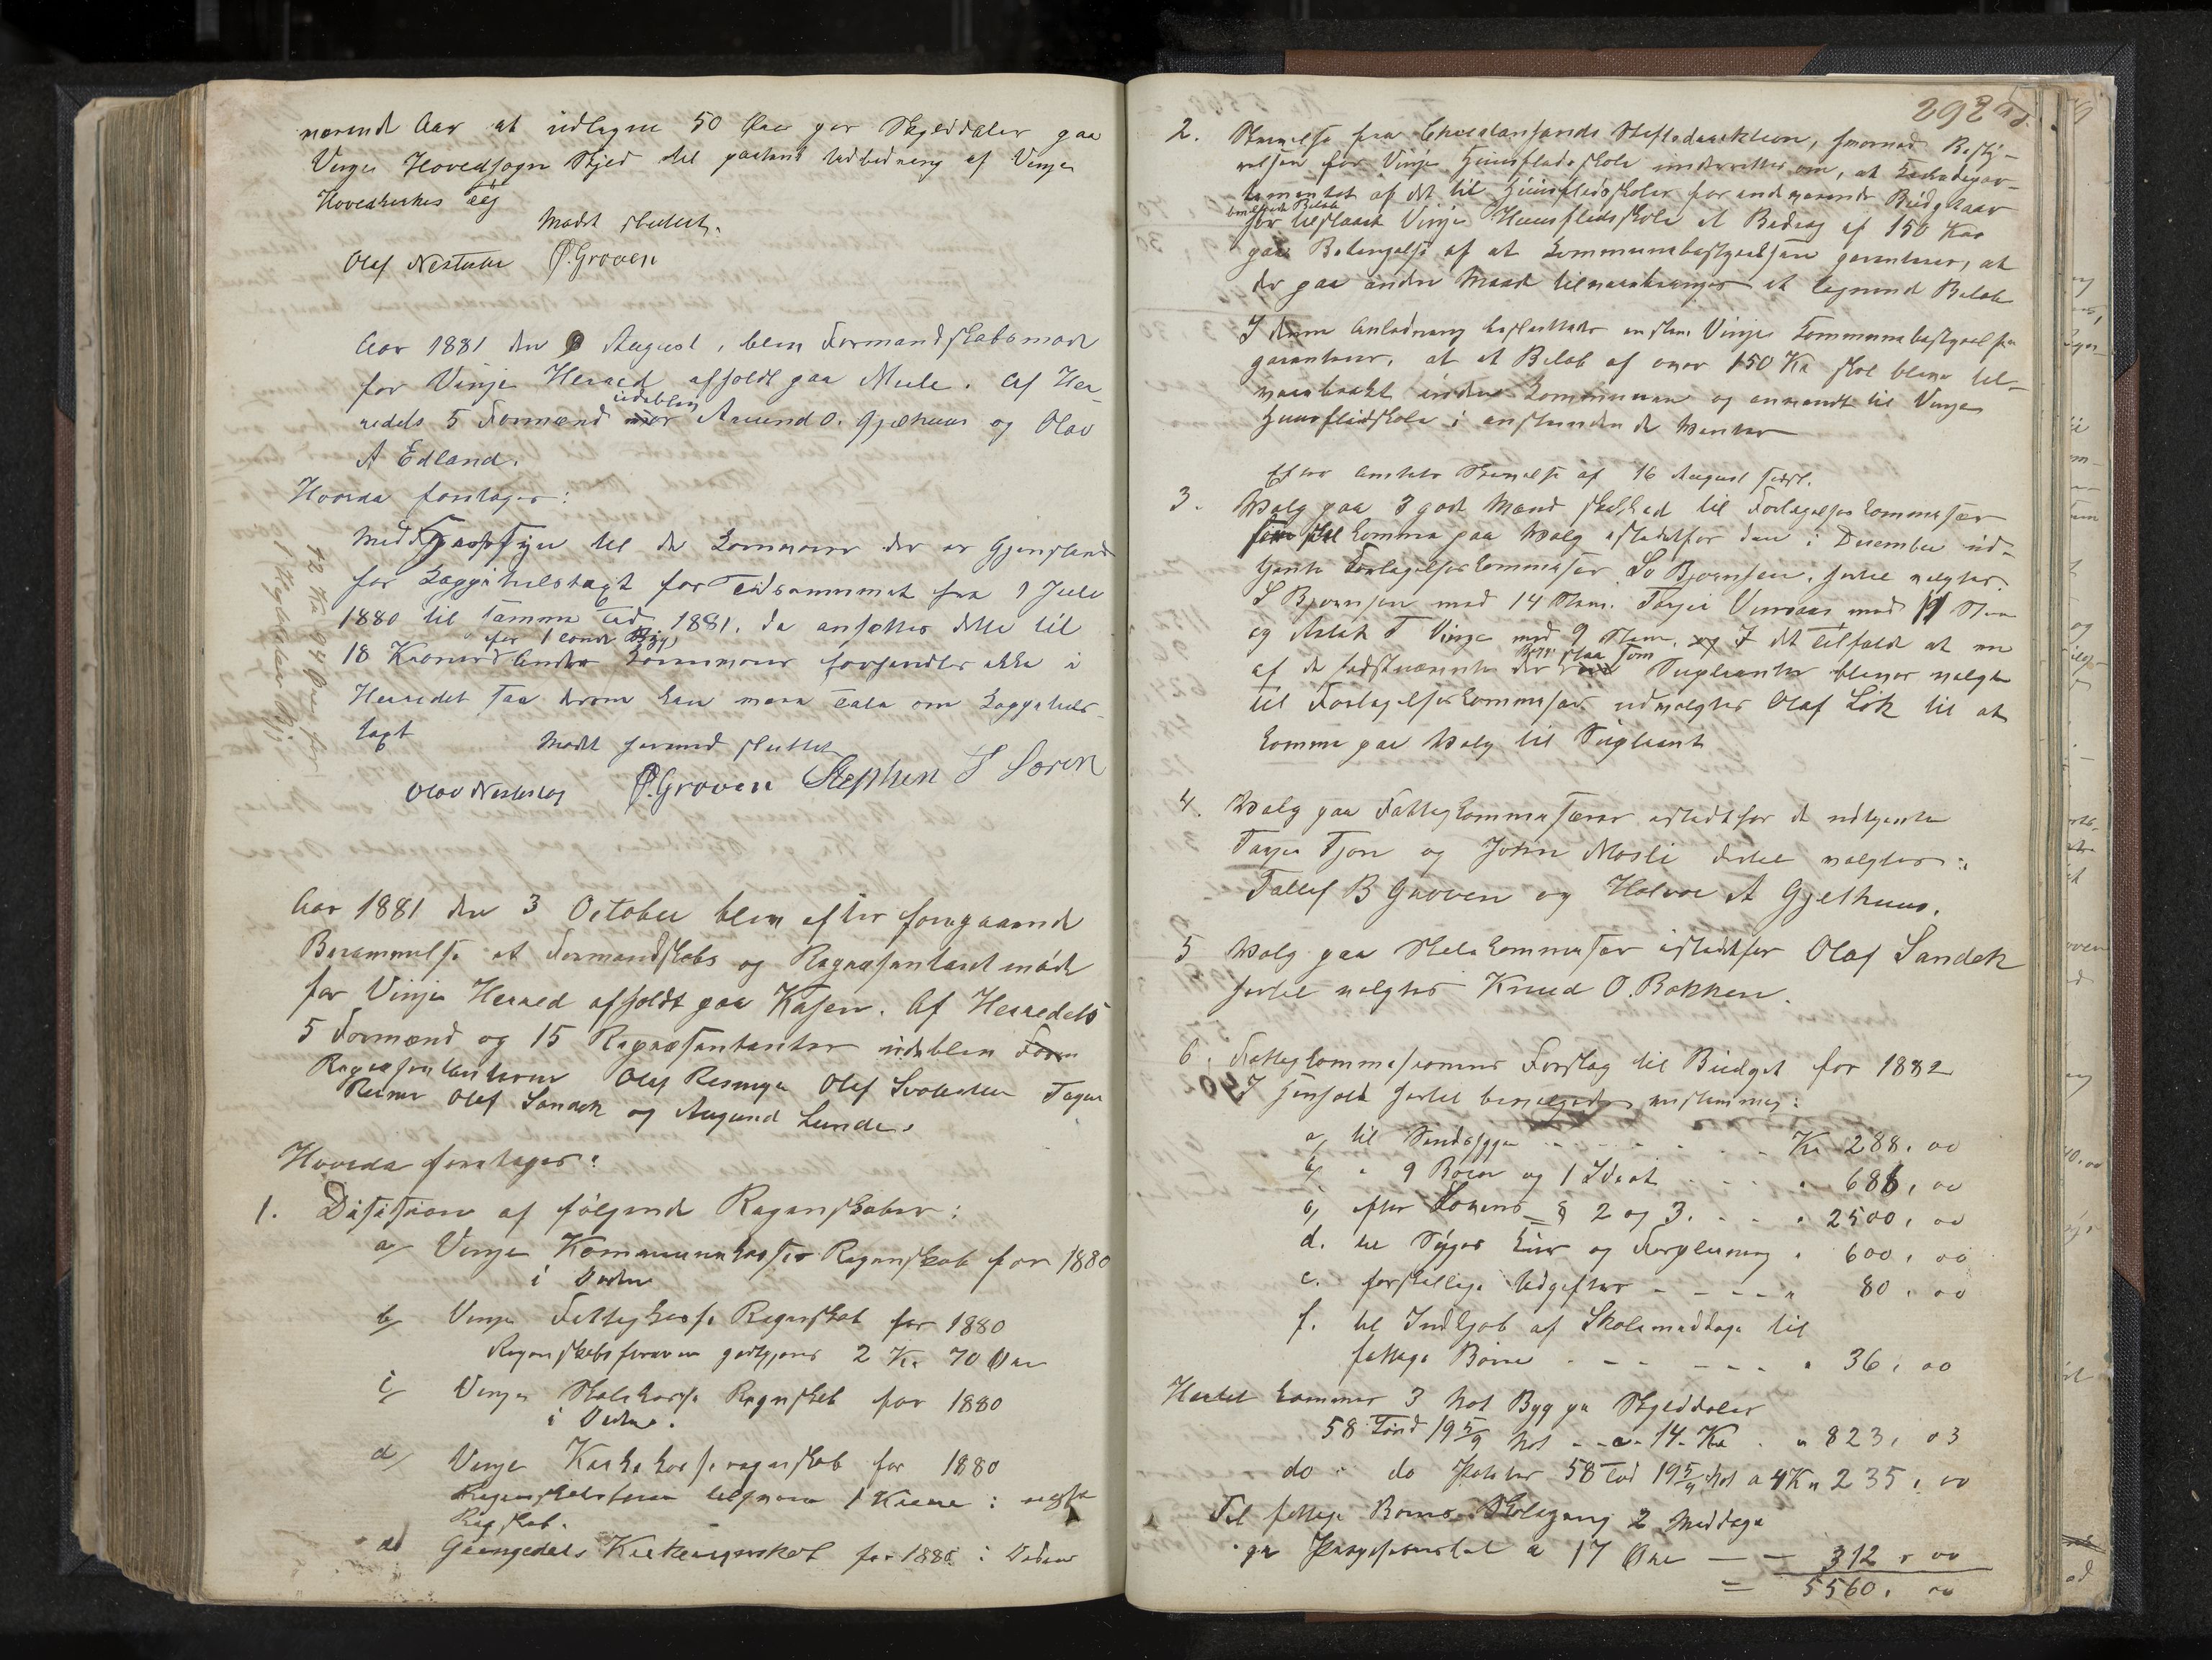 nærende Aar at udlignes 50 Øre per Skylddaler paa
Vinjes Hovedsogn Skyld til paatænkt Udbedring af Vinje
Hovedkirkes
Mødet sluttet.
Olaf Nestestu O. Groven
Aar 1881 den August, blev Formandskabsmøde
for Vinje Herred afholdt paa Mule. Af Her-
redets 5 Formænd udeblev Amund O. Gjælhuus og Olav
A Edland.
Hvorda foretages:
til de Lensmænd der er Gjenstand
for for Tidsrummet fra 1 Juli
1880 til samme Tid 1881, da ansættes dette til
for 1
18 Kroner Andre forefindes ikke i
Herredet saa derom kan være Tale om
Mødet herved sluttet
Olav Nestestog O. Groven Stephen S Loren
12 Kr 94 Øre for
1
Aar 1881 den 3 October blev efter foregaaende
Berammelse et Formandskabs og Repræsentantmøde
for Vinje Herred afholdt paa Kasen. Af Herredets
5 Formænd og 15 Repræsentanter udeblev Form
Repræsentanterne Olaf Olaf Tarjei
Olaf Sandok og Aagund Lunde.
Hvorda foretages:
1. Desision af følgende Regnskaber:
a/ Vinje Kommunekasses Regnskab for 1880
i Orden
b/ Vinje Fattigkasse Regnskab for 1880
Regnskabsføreren godtgjøres 2 Kr 70 Øre
c/ Vinje Skolekasse Regnskab for 1880
i Orden.
d/ Vinje Kirkekasseregnskab for 1880
Regnskabsføreren tilgodes 1 Krone i næste
Regnskab.
d Grungedals Kirkeregnskab for 1880 i Orden
292
2. Skrivelse fra Christiansands Stiftsdirektion, hvorved Besty-
relsen for Vinje Huusflidsskole underrettes om, at Kirkedepar-
tementet af det til Huusflidsskoler for indeværende Budgetaar
bevilgede Beløb
har tilstaaet Vinje Huusflidsskole et Bidrag af 150 Kr
paa Betingelse af at Kommunebestyrelsen garanterer, at
der paa anden Maade tilveiebringes et lignende Beløb
I denne Anledning besluttedes enstem. Vinje Kommunebestyrelse
garanterer, at et Beløb af over 150 Kr skal blive til-
veiebragt inden Kommunen og anvendt til Vinje
Huusflidsskole i anstundende Vinter
Efter Amtets Skrivelse af 16 August sidstl.
3. Valg paa 3 gode Mænd skikked til Forligelseskommisær
komme paa Valg istedetfor den i December ud-
gaaende Forligelseskommisær So Bjørnsen. Hertil valgtes
S Bjørnsen med 14 Stem. Tarjei Vinsaas med 11 Stem
og Aslak T Vinje med 9 Stem. I det Tilfælde at en
staa som
af de sidstnævnte der Supleanter bliver valgt
til Forligelseskommisær udvalgtes Olaf Lok til at
komme paa Valg til Supleant
4. Valg paa Fattigkommisærer istedetfor de udgaaende
Tarjei Tjøn og John Mosli dertil valgtes:
Tallef B Groven og Halvor A Gjelhuus.
5 Valg paa Skolekommisær istedetfor Olaf Sandok
hertil valgtes Knud O. Bakken.
6. Fattigkommisionens Forslag til Budget for 1882
I Henhold hertil bevilgedes enstemmig:
a/ til Sindssyge - - - Kr 288. 00
b/ " 9 Børn og 1 Idiot - - " 688. 00
c/ efter Lovens § 2 og 3. - - " 2500. 00
d. til Syges Kuur og Forpleining " 600. 00
e. forskjellige Udgifter - - - - " 80. 00
f. til Indkjøb af Skolemiddage til
fattige Børn - - - - - " 36. 00
Hertil kommer 3 Kot Byg pr Skylddaler
58 Tønd 19 5/9 Kot - a - 14 - Kr - " 823. 03
do - do Poteter 58 Tød 19 5/9 Kot a 4 Kr " 235. 00
Til fattige Børns Skolegang 2 Middage
pr a 17 Øre — — 312 " 00
= 5560. 00